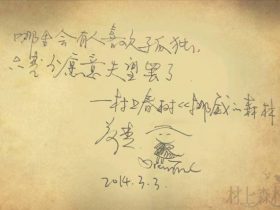 哪会会有人喜欢孤独，
只是不愿意失望罢了
—村上春树《挪威的森林
2014.3.3.
村上森林